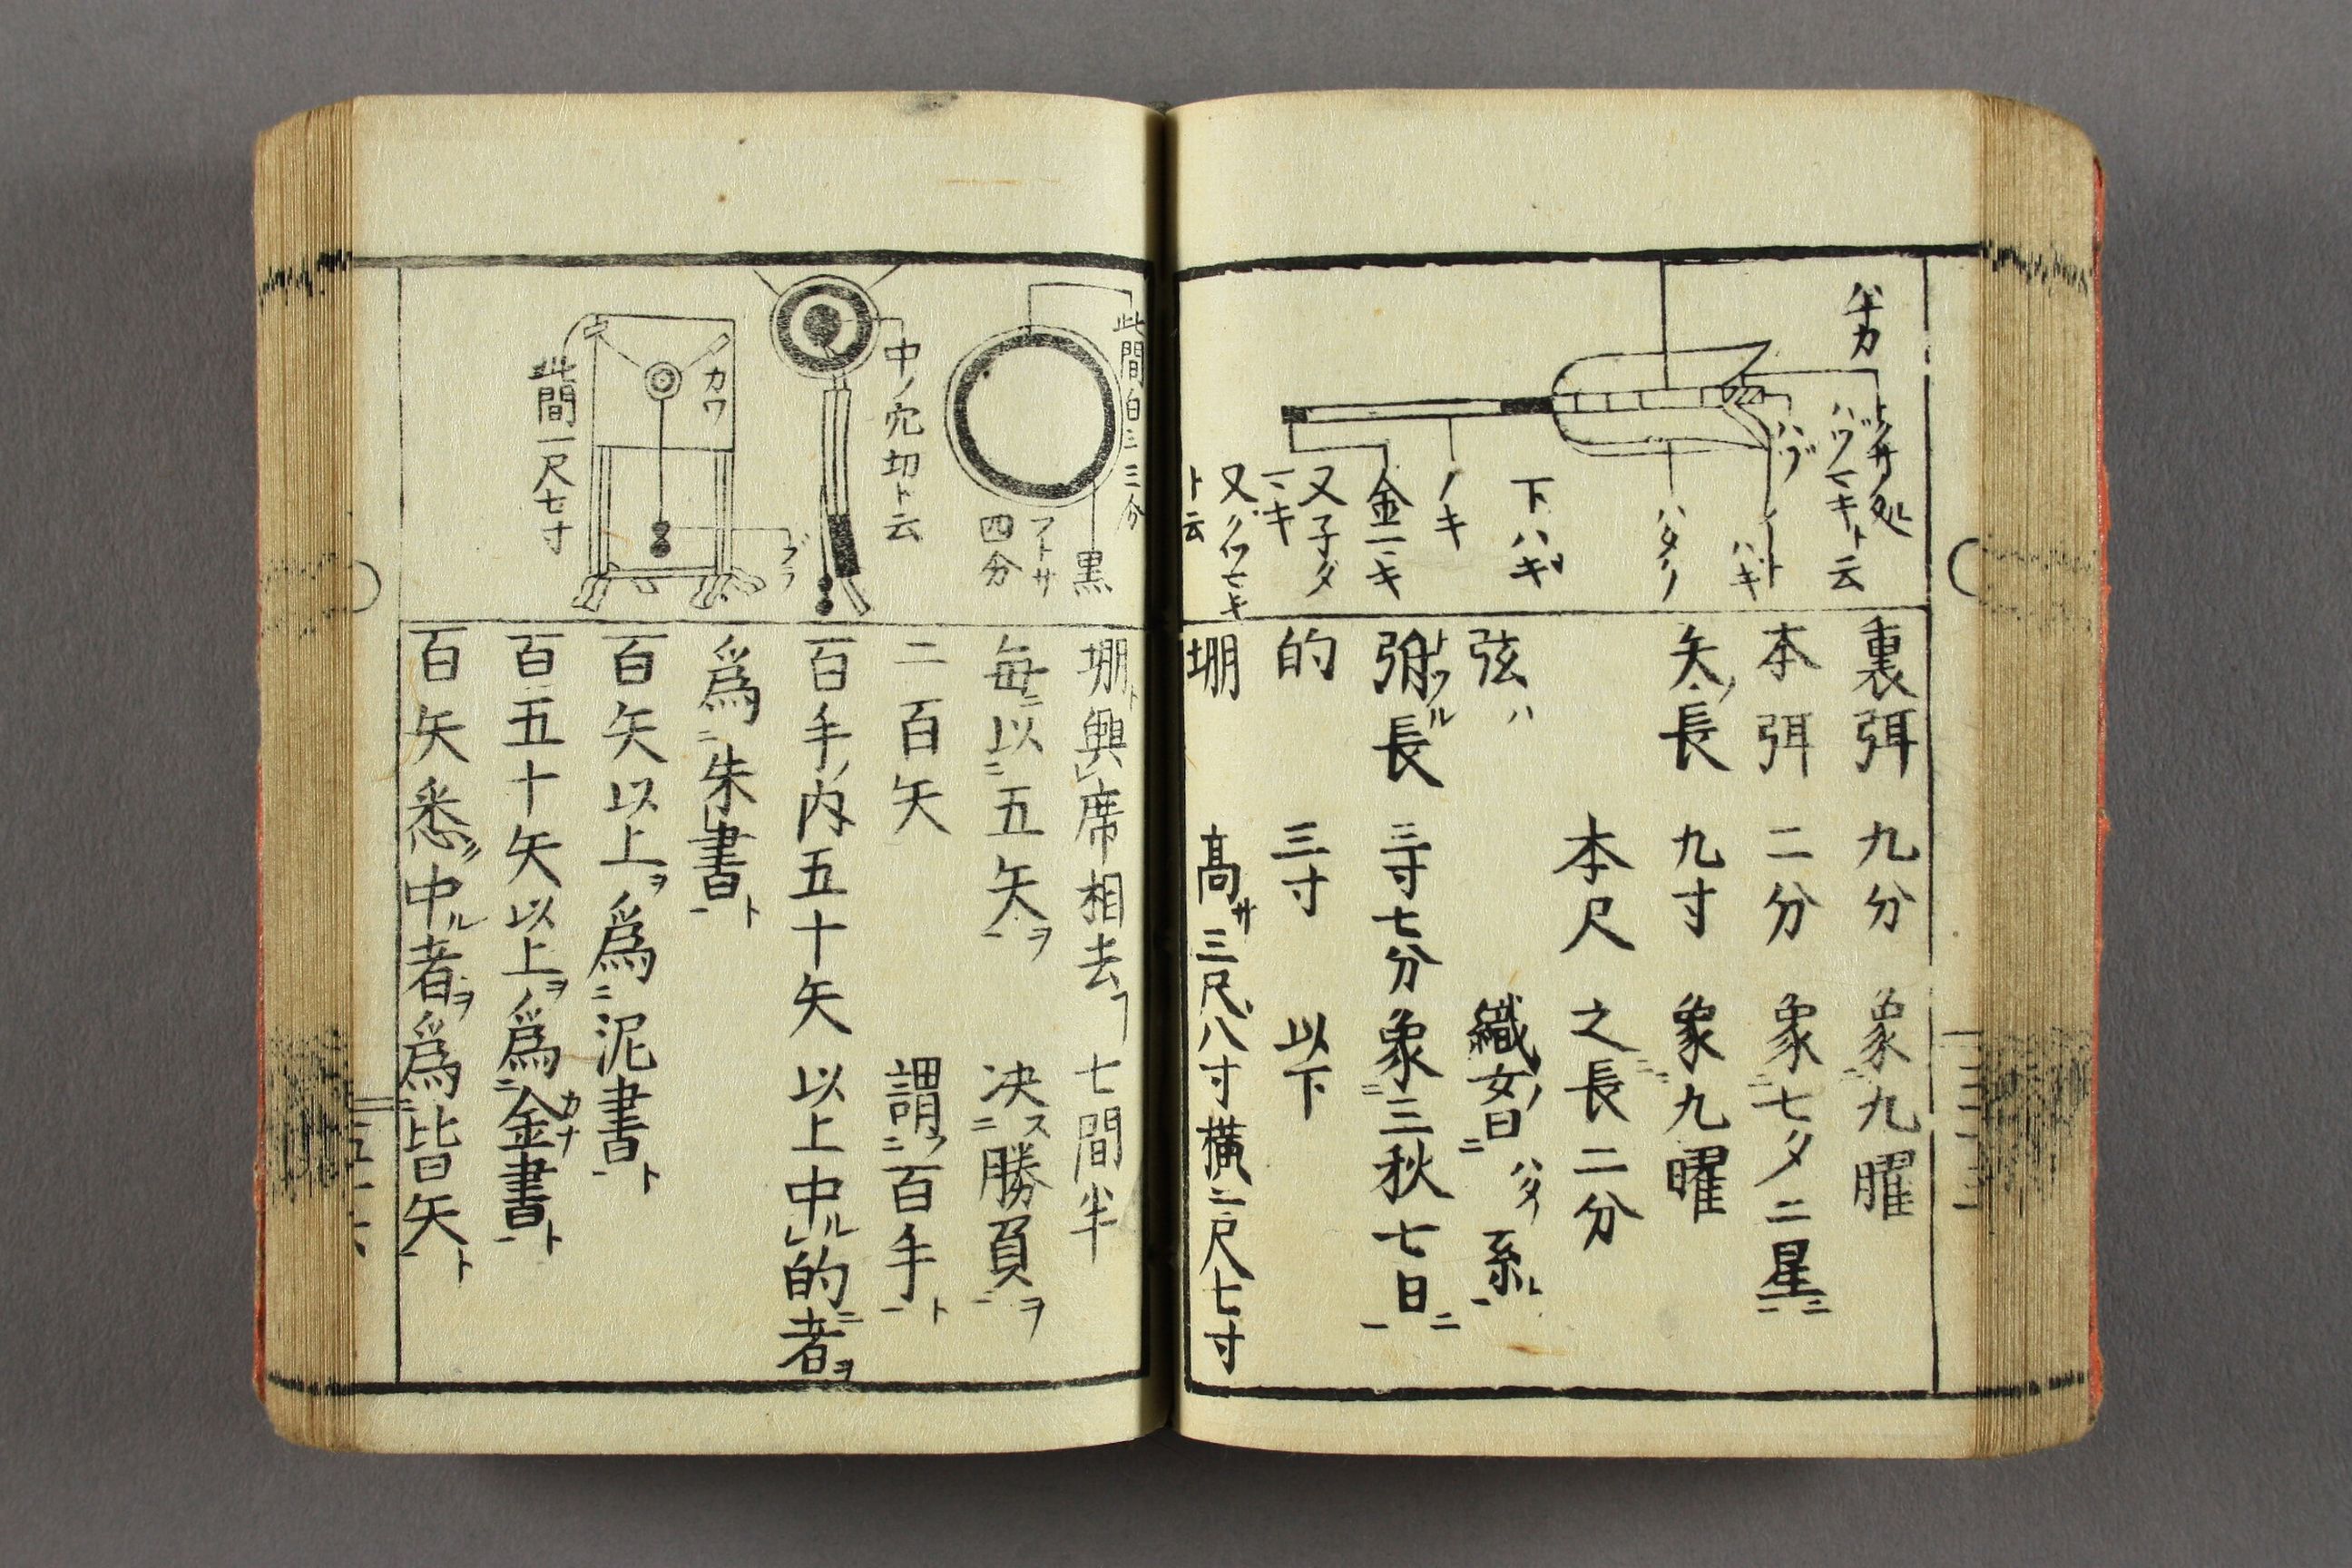 裏弭 九分 象九曜
本弭 二分 象七夕二星
矢ノ長 九寸 象九曜
本尺 之長二分
弦ハ 織女ノ習ハタノ糸
弣長 三寸七分 象三秋七日
的 三寸 以下
堋 高サ三尺八寸横二尺七寸
ハヅマキト云
ハヅ
ハギ
下ハギ
ノキ
金マキ
又子ダマキ
ト云
此間白三三分
黒
フトサ
四分
中ノ穴切ト云
カワ
ブラ
此間一尺七寸
堋ト與席相去フ七間半
毎ニ以五矢ヲ 决ス勝負ヲ
二百矢 謂フ百手ト
百手ノ内五十矢 以上中ル的ニ者ヲ
爲朱書ト
百矢以上ヲ爲泥書ト
百五十矢以上ヲ爲金書ト
百矢悉ク中ル者ヲ爲皆矢ト